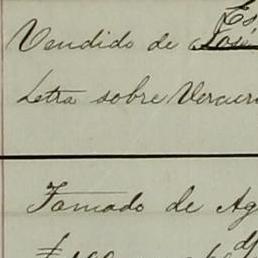 Es
Vendido de José
Letra sobre Veracru
Tomado de Ag